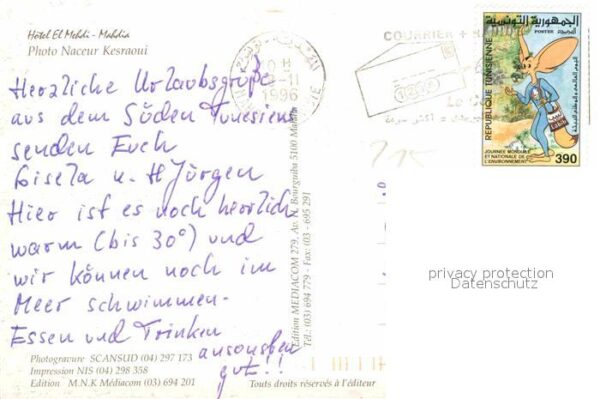 Hôtel El Mehdi - Mahdia
Photo Naceur Kesraoui
Herzliche Urlaubsgrüße
aus dem Süden Tunesiens
senden Euch
Gisela u. H Jürgen
Hier ist es noch herrlich
warm (bis 30°) und
wir können noch im
Meer schwimmen.
Essen und Trinken
ansonsten
gut!!
Photogravure SCANSUD (04) 297 173
Impression NIS (04) 298 358
Edition M.N.K Médiacom (03) 694 201
Touts droits réservés à l'éditeur
Edition MEDIACOM 279, Av. Bourguiba 5100 Mahdia
Tél.: (03) 694 779 - Fax: (03) - 695 291
1996
COURRIER +
الجمهورية التونسية
POSTES
REPUBLIQUE TUNISIENNE
JOURNEE MONDIALE
ET NATIONALE DE
L'ENVIRONNEMENT
390
privacy protection
Datenschutz